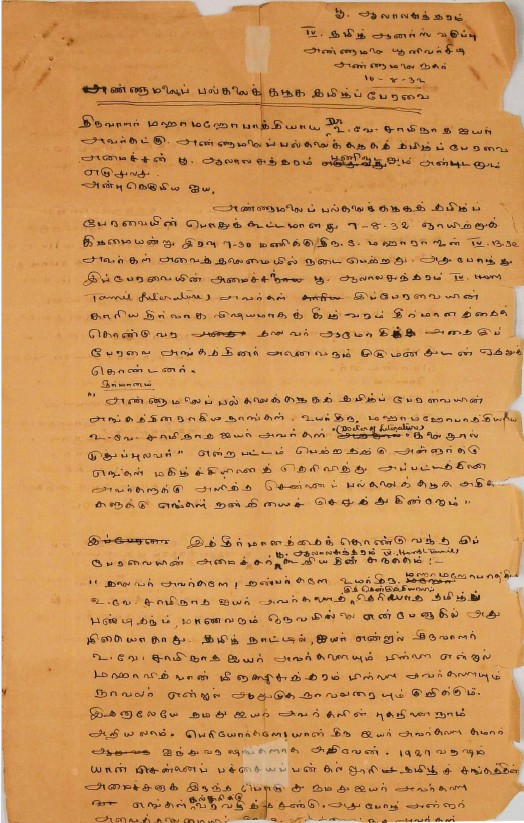 பூ. ஆலாலசுந்தரம்
IV. தமிழ் ஆனர்ஸ் வகுப்பு
அண்ணாமலை யூனிவர்சிடி
அண்ணாமலை நகர்
10-8-32
அண்ணாமலைப் பல்கலைக் கழக தமிழ்ப் பேரவை
திருவாளர் மஹாமஹோபாத்தியாய Dr. உ. வே. சாமிநாத ஐயர்
அவர்கட்கு. அண்ணாமலைப் பல்கலைக்கழகத் தமிழ்ப் பேரவை
அமைச்சன் பூ. ஆலாலசுந்தரம் அன்புடனும்
எழுதுவது.
அன்பு கெழுமிய ஐய,
அண்ணாமலைப் பல்கலைக்கழகத் தமிழ்ப்
பேரவையின் பொதுக் கூட்டமானது 7-8-32 ஞாயிற்றுக்
கிழமையன்று இரவு 7-30 மணிக்கு
அவர்கள் அவைத் தலைமையில் நடைபெற்றது. அது போழ்து
இப்பேரவையின் அமைச்சர் பூ. ஆலாலசுந்தரம் IV. Hons
Tamil Literature) அவர்கள் இப்பேரவையின்
காரிய நிர்வாக விஷயமாகக் கீழ்வரும் தீர்மானத்தைக்
கொண்டுவர தலைவர் ஆமோதிக்க அதை இப்
பேரவை அங்கத்தினர் அனைவரும் ஒருமனதுடன் ஏற்றுக்
கொண்டனர்.
தீர்மானம்
"அண்ணாமலைப் பல்கலைக்கழகத் தமிழ்ப் பேரவையின்
அங்கத்தினராகிய நாங்கள், உயர்திரு மஹாமஹோபாத்தியாய
உ. வே. சாமிநாத ஐயர் அவர்கள் (Doctor of Literature)
என்ற பட்டம் பெற்றதற்கு அன்னார்க்கு
எங்கள் மகிழ்ச்சியினைத் தெரிவித்து அப்பட்டத்தினை
அவர்களுக்கு அளித்த சென்னைப் பல்கலைக் கழக அதிகாரி
களுக்கு எங்கள் நன்றியைச் செலுத்துகின்றோம்"
இத்தீர்மானத்தைக் கொண்டுவந்த இப்
பூ. ஆலாலசுந்தரம் IV. Hons (Tamil)
பேரவையின் அமைச்சர் சுருக்கம்:-
"தலைவர் அவர்களே! நண்பர்களே! உயர்திரு மஹாமஹோபாத்தியாய
உ. வே. சாமிநாத ஐயர் அவர்களைத் தெரியாத தமிழ்ப்
பண்டிதரும், மாணவரும் ஒருவரில்லை என்பேனாகில் அது
மிகையாகாது. தமிழ் நாட்டில், ஐயர் என்றால் திருவாளர்
உ. வே. சாமிநாத ஐயர் அவர்களையும் பிள்ளை என்றால்
மஹாவித்வான் மீனாக்ஷிசுந்தரம் பிள்ளை அவர்களையும்
நாவலர் என்றால் ஆறுமுகநாவலரையும் குறிக்கும்.
இதனாலேயே நமது ஐயர் அவர்களின் புகழினை நாம்
அறியலாம். பெரியோர்களே! யான் திரு ஐயர் அவர்களை சுமார்
ஐந்து வருஷங்களாக அறிவேன். 1927 வருஷம்
யான் சென்னைப் பச்சையப்பன் கல்லூரி தமிழ்ச் சங்கத்தின்
அமைச்சனாக இருந்த பொழுது நமது ஐயர் அவர்களை
எங்கள் அது போழ்து அன்னார்